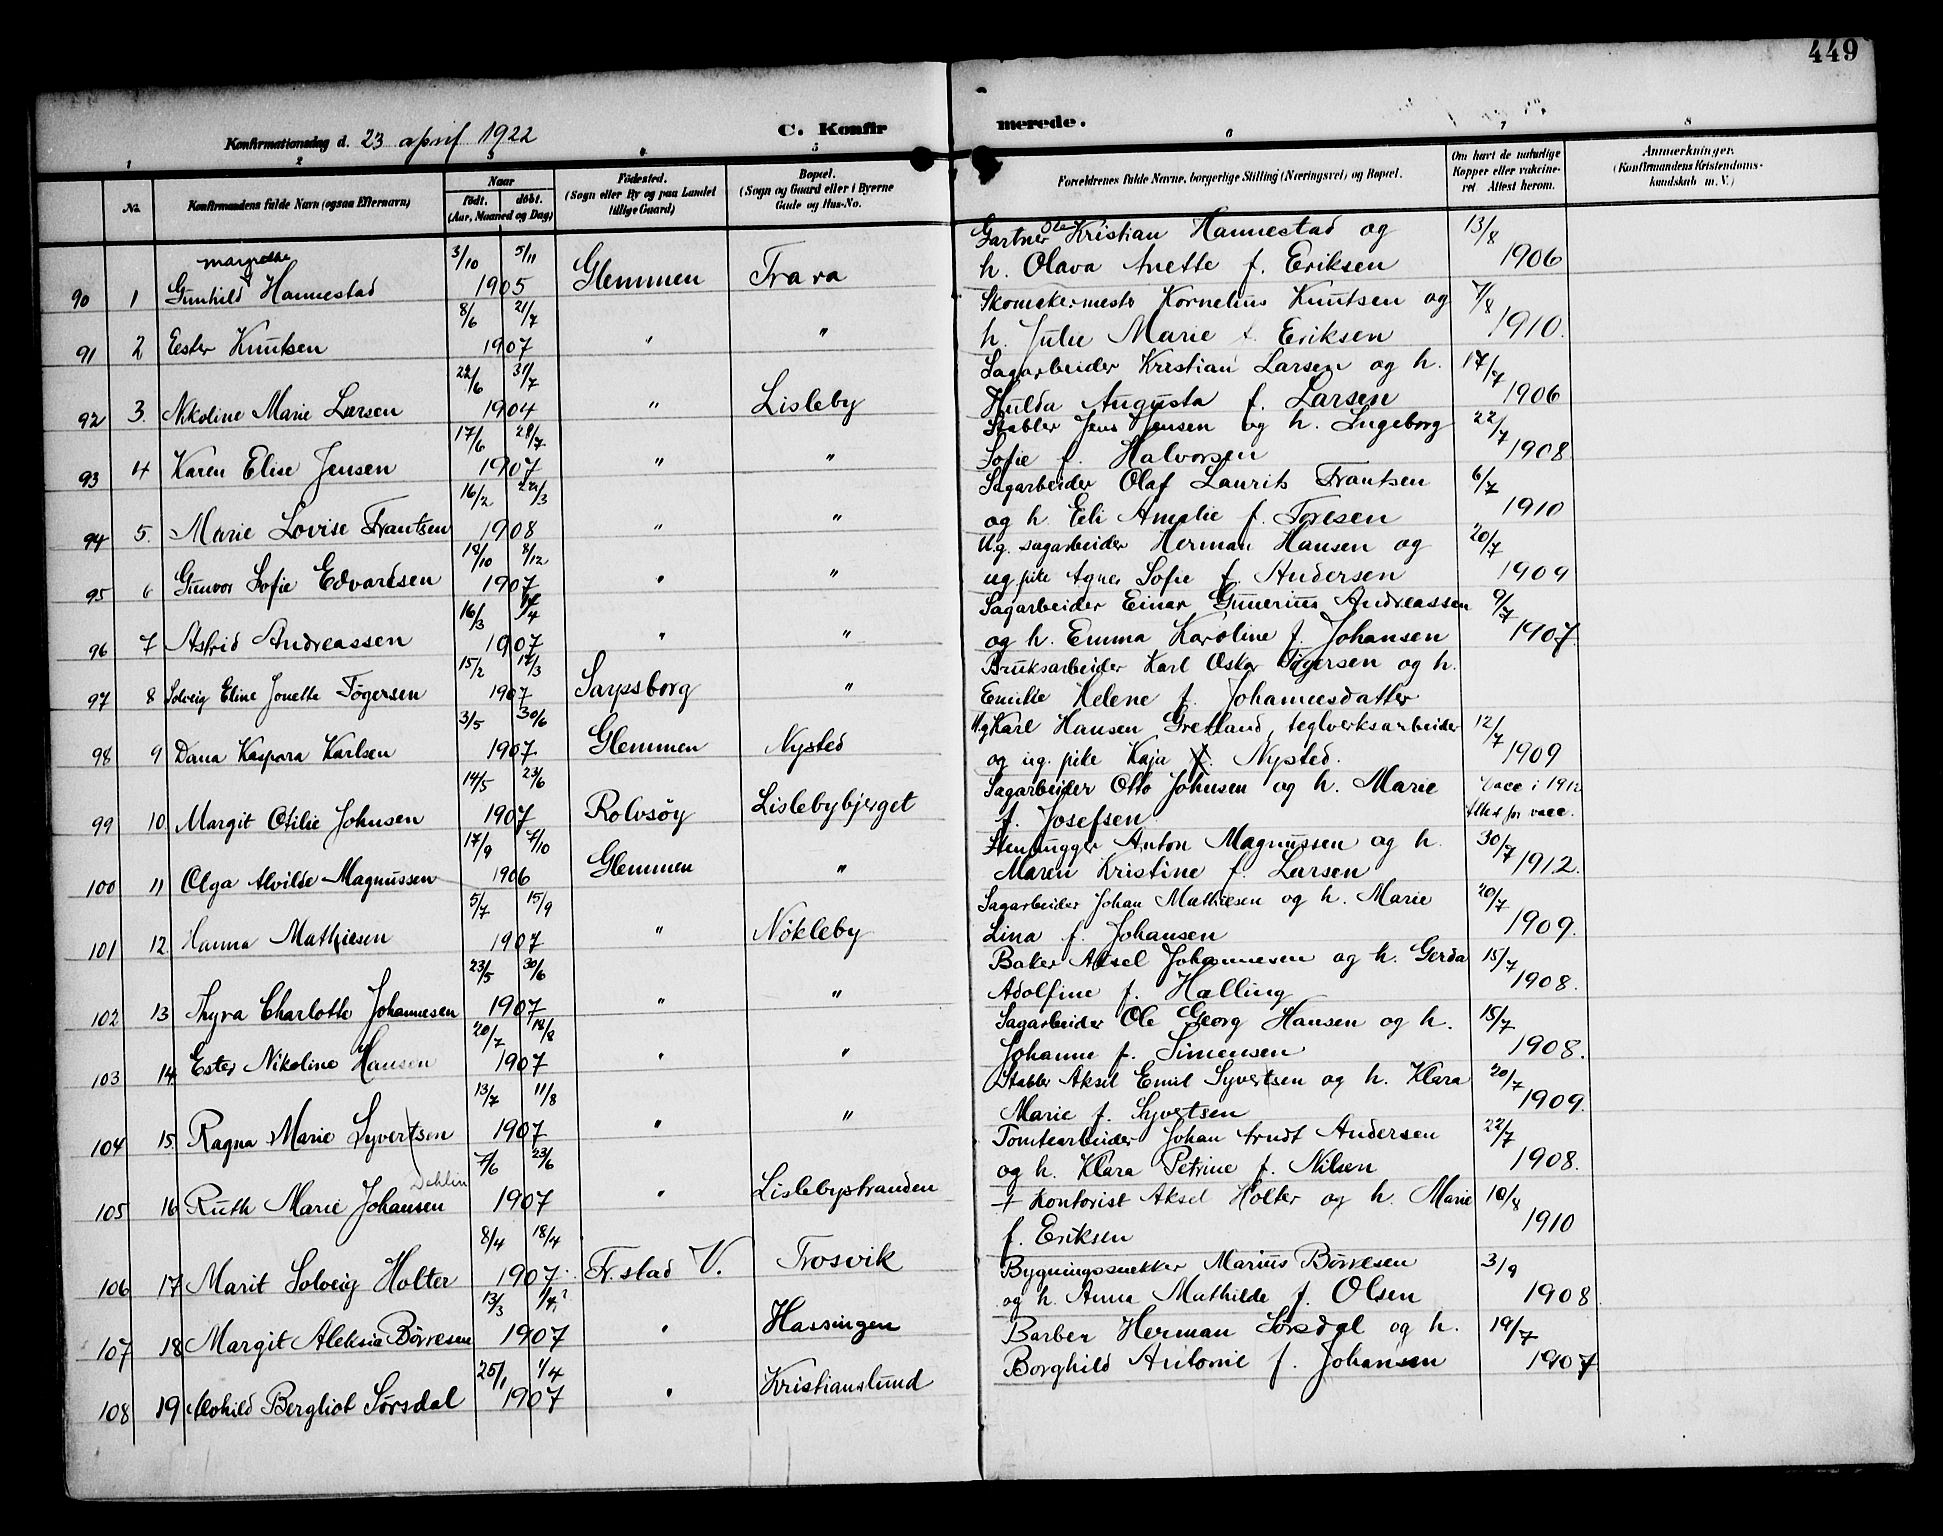 449
Konfirmationsdag d. 23 april 1922
C. Konfirmerede.
1 2 3 4 5 6 7 8
No.
Konfirmandens fulde Navn (ogsaa Efternavn)
Naar
født. døbt.
(Aar, Maaned og Dag)
Fødested.
(Sogn eller By og paa Landet tillige Gaard)
Bopæl.
(Sogn og Gaard eller i Byerne Gade og Hus-No.
Forældrenes fulde Navne, borgerlige Stilling (Næringsvei) og Bopæl.
Om havt de naturlige Kopper eller vakcineret. Attest herom.
Anmerkninger.
(Konfirmandens Kristendomskundskab m. V.)
90 1 Gunhild Margrethe Hannestad 3/10 5/11 1905 Glemmen Trara
Gartner Ole Kristian Hannestad og 13/8
h. Olava Anette f. Eriksen 1906
91 2 Ester Knutsen 8/6 21/7 1907 " "
Skomakermester Kornelius Knutsen og 7/8
h. Julie Marie f. Eriksen 1910.
92 3. Nikoline Marie Larsen 22/6 31/7 1904 " Lisleby
Sagarbeider Kristian Larsen og h. 17/7
Hulda Augusta f. Larsen 1906
93 4 Karen Elise Jensen 17/6 28/7 1907 " "
Stabler Jens Jensen og h. Ingeborg 22/7
Sofie f. Halvorsen 1908.
94 5. Marie Lovise Frantsen 16/2 22/3 1908 " "
Sagarbeider Olaf Laurits Frantsen 6/7
og h. Eli Amalie f. Toresen 1910
95 6 Gunvor Sofie Edvardsen 18/10 8/12 1907 " "
Ug. sagarbeider Herman Hansen og 20/7
ug. pike Agnes Sofie f. Andersen 1909
96 7 Astrid Andreassen 16/3 1907 " "
Sagarbeider Einar Gunerius Andreassen 9/7
og h. Emma Karoline f. Johansen 1907.
97 8 Solveig Eline Jonette Tøgersen 15/2 17/3 1907 Sarpsborg "
Bruksarbeider Karl Oskar Tøgersen og h.
Emilie Helene f. Johannesdatter
98 9 Dana Kaspara Karlsen 3/5 30/6 1907 Glemmen Nysted
Ug Karl Hansen Gretland, teglverksarbeider 12/7
og ug. pike Kaja f. Nysted. 1909
99 10. Margit Otilie Johnsen 14/5 23/6 1907 Rolvsøy Lislebybjerget
Sagarbeider Otto Johnsen og h. Marie Vacc i 1912
f. Josefsen Attest for vacc.
100 11 Olga Alvilde Magnussen 17/9 7/10 1906 Glemmen "
Stenhugger Anton Magnussen og h. 30/7
Maren Kristine f. Larsen 1912.
101 12. Hanna Mathiesen 5/7 15/9 1907 " Nökleby
Sagarbeider Johan Mathiesen og h. Marie 20/7
Lina f. Johansen 1909.
102 13 Thyra Charlotte Johannesen 23/5 30/6 1907 " "
Baker Aksel Johannesen og h. Gerda 15/7
Adolfine f. Hælling 1908.
103 14 Ester Nikoline Hansen 20/7 18/8 1907 " "
Sagarbeider Ole Georg Hansen og h. 15/7
Johanne f. Simensen 1908.
104 15. Ragna Marie Syvertsen 13/7 11/8 1907 " "
Stabler Aksel Emil Syvertsen og h. Klara 20/7
Marie f. Syvertsen 1909.
105 16 Ruth Marie Johansen Dehlin 7/6 23/6 1907 " Lislebystranden
Tomtearbeider Johan Arndt Andersen 22/7
og h. Klara Petrine f. Nilsen 1908.
106 17 Marit Solveig Holter 8/4 18/4 1907. Fr.stad V. Trosvik
+ Kontorist Aksel Holter og h. Marie 10/8
f. Eriksen 1910
107 18 Margit Aleksia Børresen 13/3 1/4? 1907 " Hassingen
Bygningssnekker Marius Børresen 3/9
og h. Anna Mathilde f. Olsen 1908
108 19 Alvhild Bergliot Sørsdal 25/1 1/4 1907 " Kristianslund
Barber Herman Sørsdal og h. 19/7
Borghild Antonie f. Johansen 1907